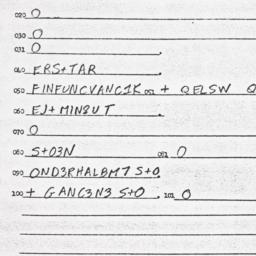 020 O
030 O
031 O
040 ERS+TAR
050 FINFUNCVANC1K 051 + QELSW Q
060 EJ+MIN8UT
070 O
080 S+03N 082 O
090 OND3RHALBM7 S+O
100 + GANC3N3 S+O 101 O